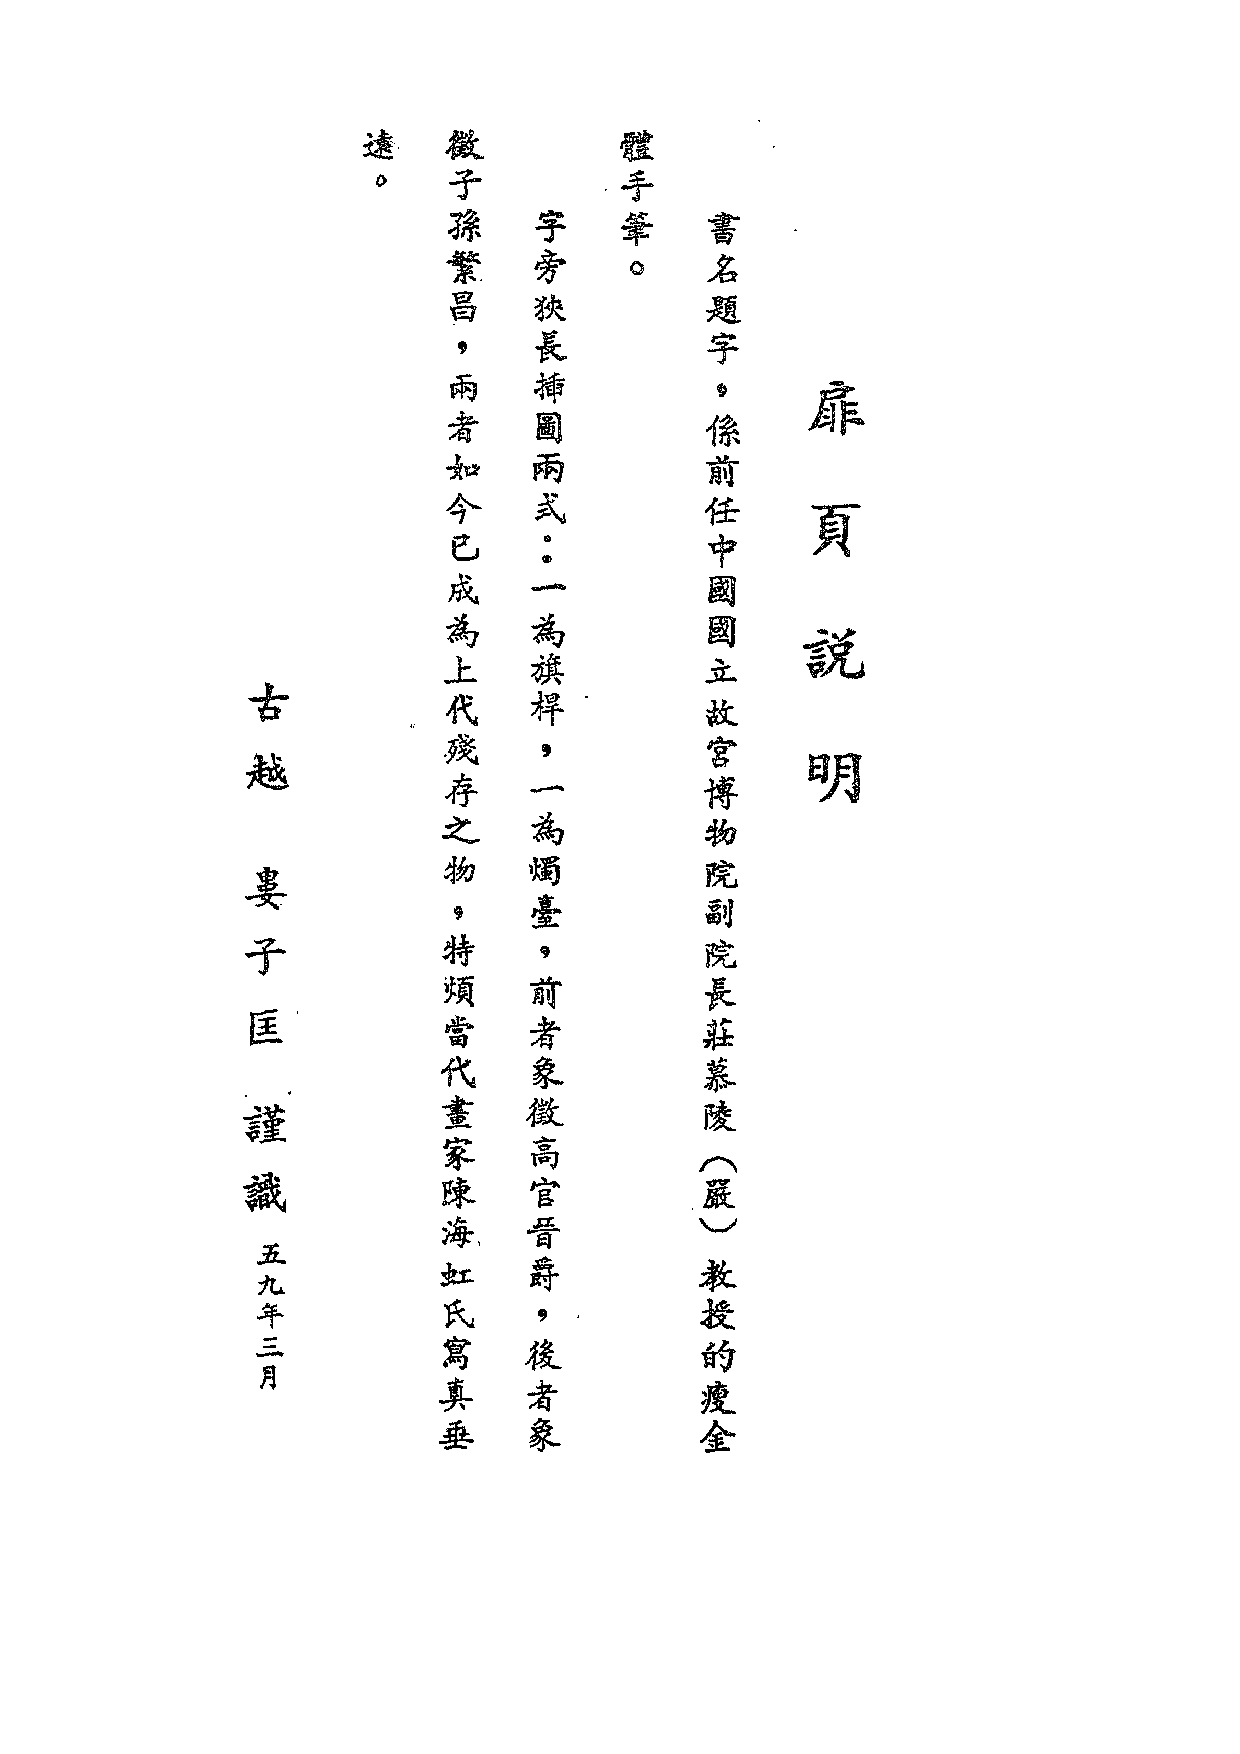 扉頁説明
書名題字,係前任中國國立故宮博物院副院長莊慕陵(嚴)教授的瘦金
體手筆。
字旁狹長插圖兩式:一為旗桿,一為燭臺,前者象徵高官晉爵,後者象
徵子孫繁昌,兩者如今已成為上代殘存之物,特煩當代畫家陳海虹氏寫真垂
遠。
古越 婁子匡 謹識 五九年三月